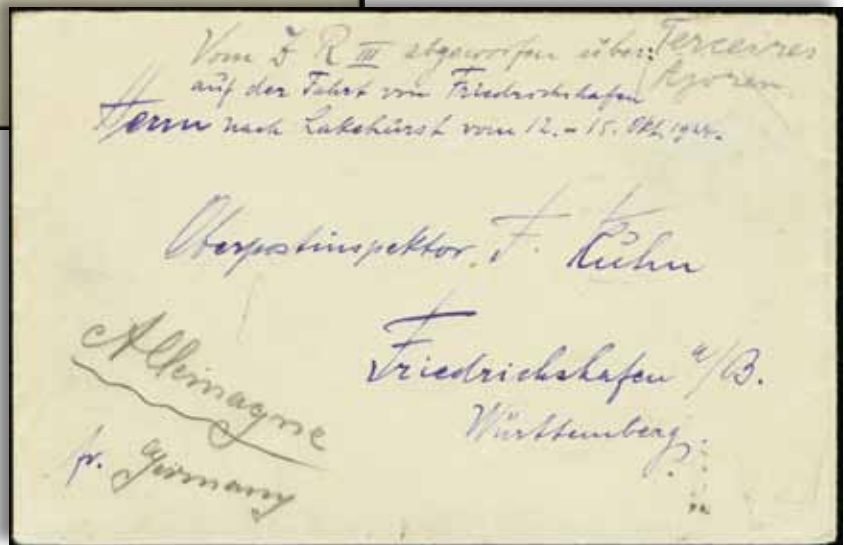 Vom Z R III abgeworfen über: Terceires
Azoren
auf der Fahrt von Friedrichshafen
Herrn nach Lakehurst vom 12. - 15. Okt. 1924.
Oberpostinspektor F. Kühn
Friedrichshafen a/B.
Württemberg.
Allemagne
fr. Germany